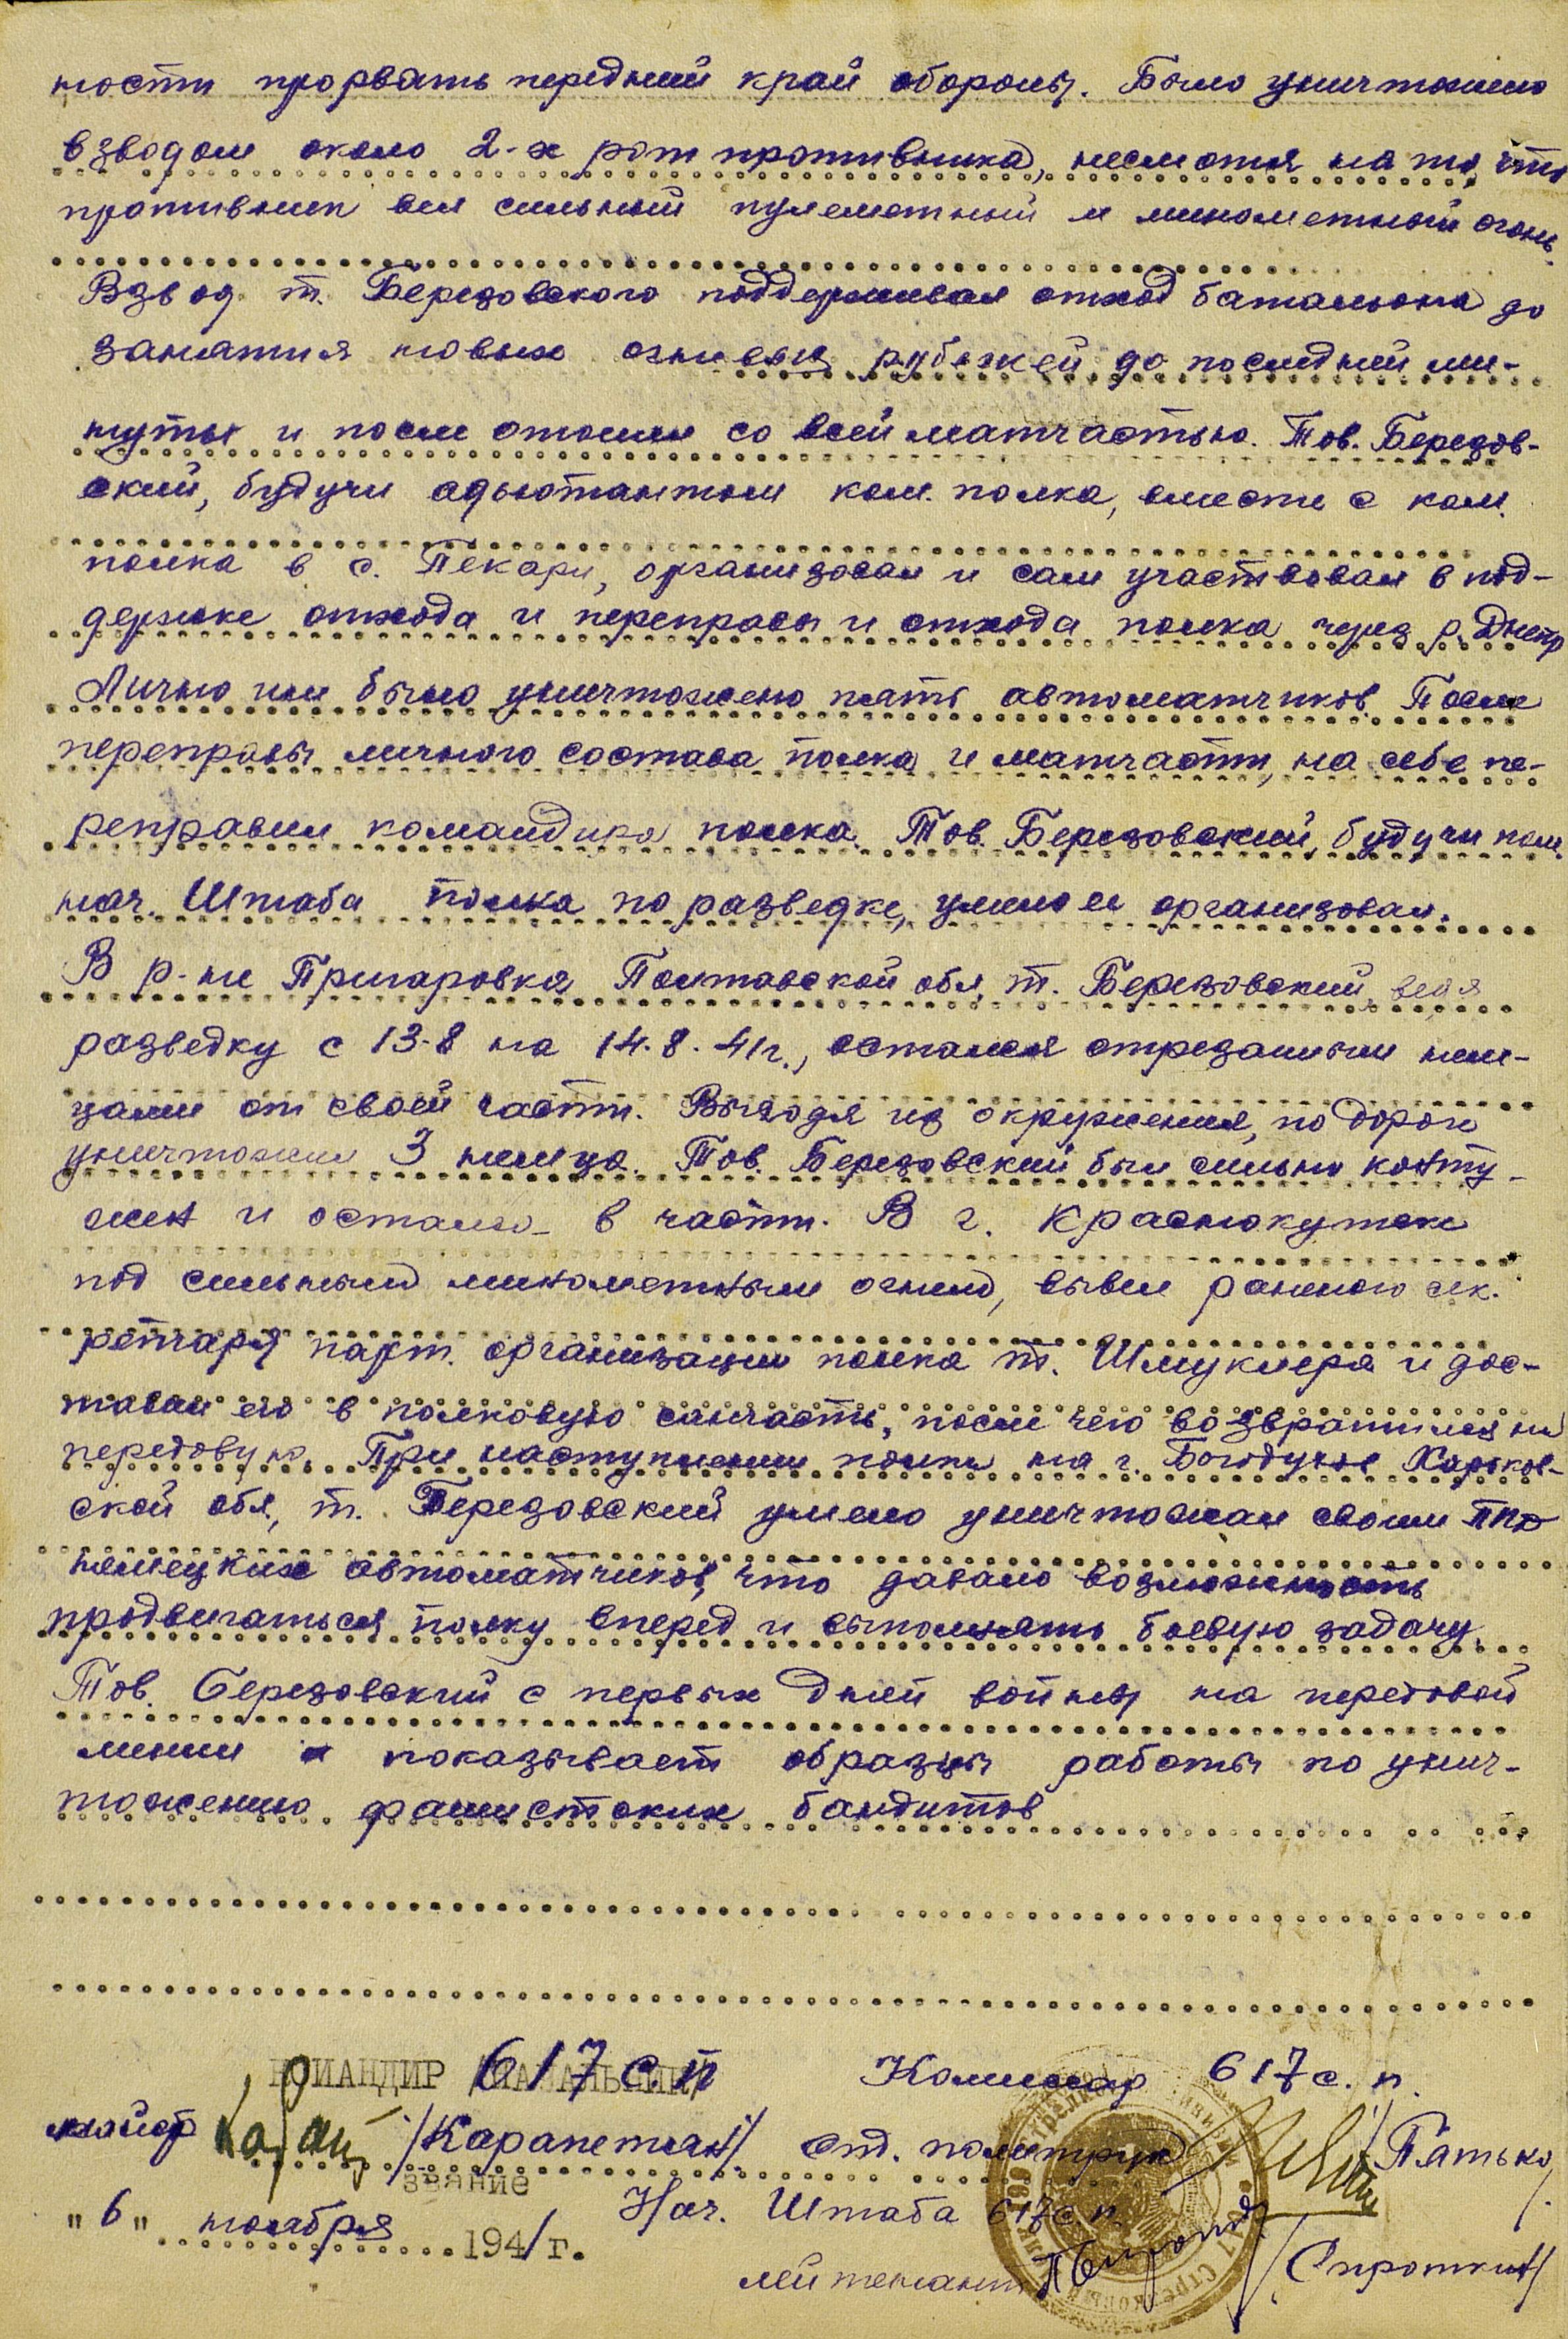 ности прорвать передний край обороны. Было уничтожено
взводом около 2-х рот противника, несмотя на то, что
противник вел сильный пулеметный и минометный огонь.
Взвод т. Березовского поддерживал отход батальона до
занятия новых огневых рубежей до последней ми-
нуты и после отошел со всей матчастью. Тов. Березов-
ский, будучи адьютантом ком. полка, вместе с ком.
полка в с. Пекари, организовал и сам участвовал в под-
держке отхода и переправы и отхода полка через р. Днепр
Лично им было уничтожено пять автоматчиков. После
переправы личного состава полка и матчасти, на себе пе-
реправил командира полка. Тов. Березовский, будучи пом.
нач. Штаба полка по разведке, умело ее организовал.
В р-не Пригаровка Полтавской обл. т. Березовский, ведя
разведку с 13-8 на 14.8.41г., остался отрезанным нем-
цами от своей части. Выходя из окружения, по дороге
уничтожил 3 немца. Тов. Березовский был сильно конту-
жен и остался в части. В г. Краснокутске
под сильным минометным огнем, вывел раненого сек-
ретаря парт. организации полка т. Шмуклера и дос-
тавил его в полковую санчасть, после чего возвратился на
передовую. При наступлении полка на г. Богодухов Харьков-
ской обл, т. Березовский умело уничтожал своим
немецких автоматчиков, что давало возможность
продвигаться полку вперед и выполнять боевую задачу.
Тов. Березовский с первых дней войны на передовой
линии и показывает образцы работы по унич-
тожению фашистских бандитов
КОМАНДИР (НАЧАЛЬНИК) 617 с п Комиссар 617 с. п.
майор /Карапетян/ ст. политрук /Пятько/
звание
"6" ноября 1941 г. Нач. Штаба 617 с п.
лейтенант /Сироткин/